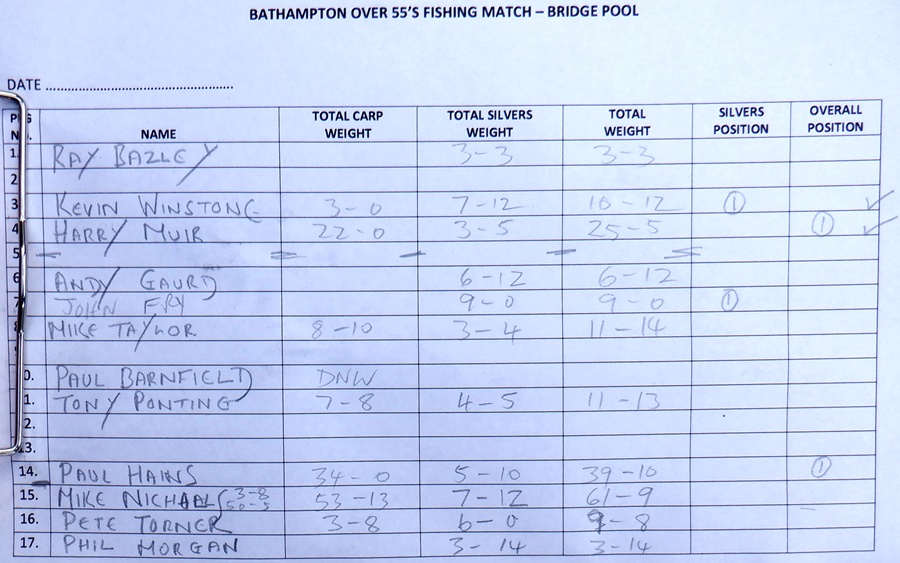 BATHAMPTON OVER 55'S FISHING MATCH – BRIDGE POOL
DATE ......................................................
NAME TOTAL CARP WEIGHT TOTAL SILVERS WEIGHT TOTAL WEIGHT SILVERS POSITION OVERALL POSITION
1. RAY BAZLEY 3-3 3-3
2.
3 KEVIN WINSTONE 3-0 7-12 10-12 1
4 HARRY MUIR 22-0 3-5 25-5 1
5
6 ANDY GAURD 6-12 6-12
7 JOHN FRY 9-0 9-0 1
8 MIKE TAYLOR 8-10 3-4 11-14
0. PAUL BARNFIELD DNW
1. TONY PONTING 7-8 4-5 11-13
2.
13.
14. PAUL HAINS 34-0 5-10 39-10 1
15. MIKE NICHALLS 3-8 50-5 53-13 7-12 61-9
16. PETE TORNER 3-8 6-0 9-8
17. PHIL MORGAN 3-14 3-14